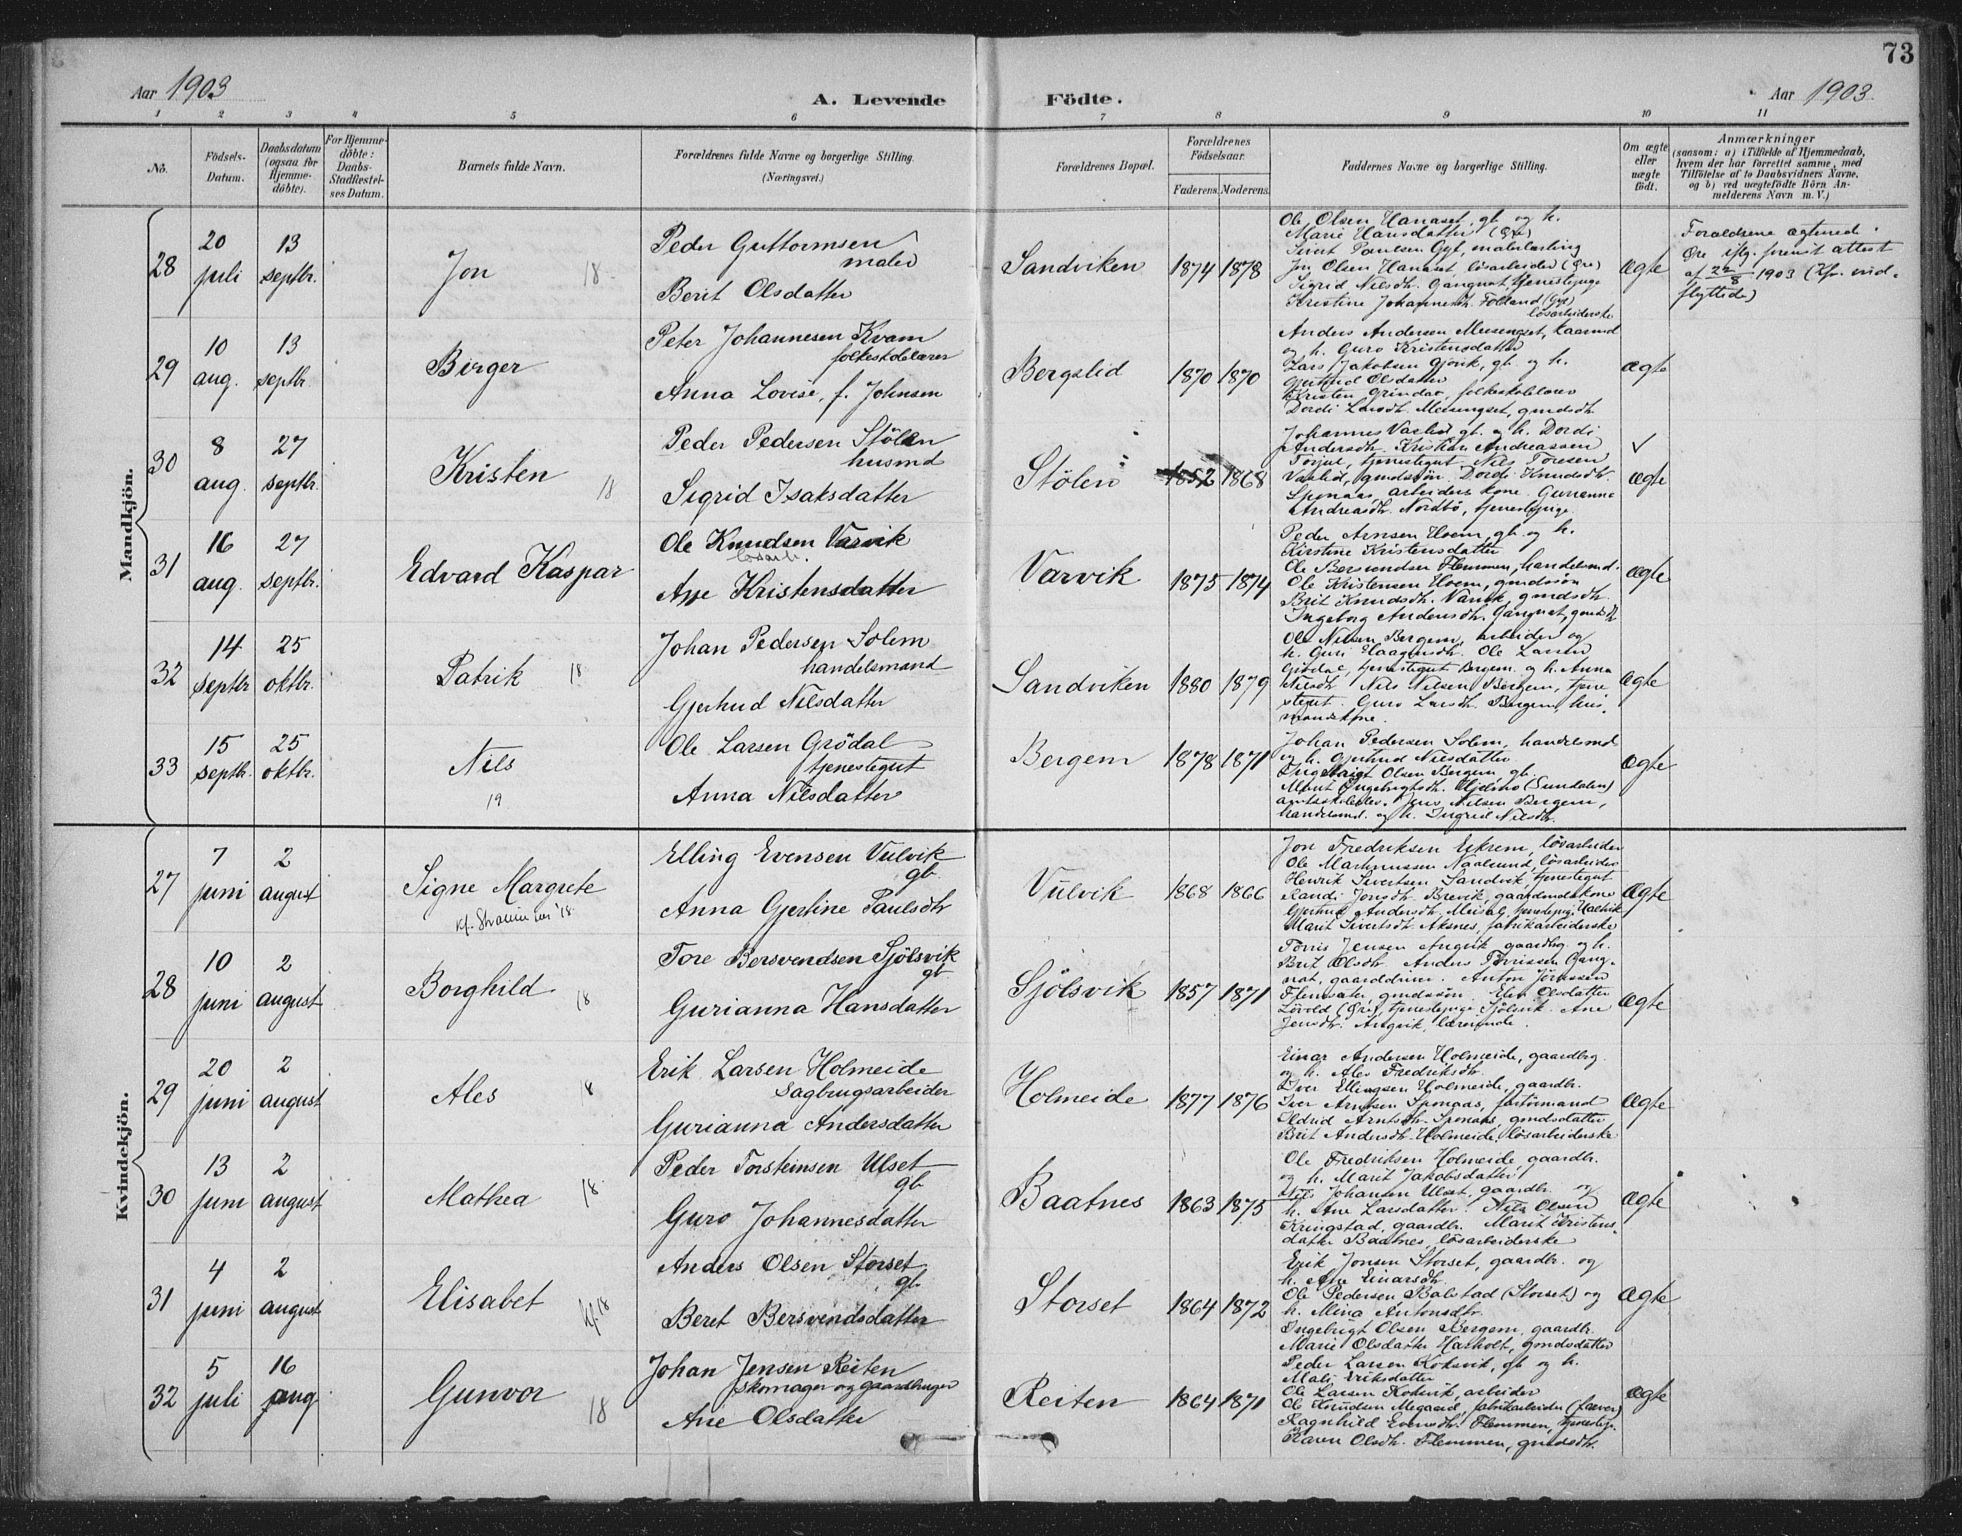 73
Aar 1903
A. Levende Födte.
Aar 1903.
1 2 3 4 5 6 7 8 9 10 11
No.
Födsels-
Datum.
Daabsdatum
(ogsaa for
Hjemme-
döbte).
For Hjemme-
döbte:
Daabs-
Stadfæstel-
ses Datum.
Barnets fulde Navn.
Forældrenes fulde Navne og borgerlige Stilling.
(Næringsvei.)
Forældrenes Bopæl.
Forældrenes
Födselsaar.
Faderens. Moderens.
Faddernes Navne og borgerlige Stilling.
Om ægte
eller
uægte
födt.
Anmærkninger
(saasom: a) i Tilfælde af Hjemmedaab,
hvem der har forrettet samme, med
Tilföielse af to Daabsvidners Navne,
og b) ved uægtefödte Börn An-
melderens Navn m. V.)
Mandkjön.
28
20
juli
13
septbr.
Jon 18
Peder Guttormsen
maler
Berit Olsdatter
Sandviken
1874 1878
Ole Olsen Hanaset, gb. og h.
Marie Hansdatter (Öre)
Sivert Paulsen malerlærling
Jon Olsen Hanaset, lösarbeider (Öre)
Sigrid Nilsdtr. Gangnat, tjenestepige
Kristine Johannesdtr.
lösarbeiderske
ægte
Forældrene ægteviet i
Öre iflg. attest
af 22/8 1903
flyttede)
29
10
aug.
13
septbr.
Birger
Peter Johannesen Kvam
folkeskolelærer
Anna Lovise, f. Johnsen
Bergslid
1870 1870
Anders Andersen Meisingset, kaarmd
og h. Guro Kristensdatter
Lars Jakobsen Gjörvik, gb. og h.
Gjertrud Olsdatter
Kristen Grindal, folkeskolelærer
Dordi Larsdtr. Meisingset, gmdsdtr.
ægte
30
8
aug.
27
septbr.
Kristen 18
Peder Pedersen Stölen
husmd
Sigrid Isaksdatter
Stölen
1852 1868
Johannes Vaslid gb. og h. Dordi
Andersdtr. Kristian Andreassen
Torjul, tjenestegut. Nils Toresen
Vaslid, gmdssön. Dordi Knudsdtr.
Sponaas arbeiders kone. Gurianna
Andreasdtr. Nordbö, tjenestepige.
ægte
31
16
aug.
27
septbr.
Edvard Kaspar
Ole Knudsen Varvik
lösarb.
Ane Kristensdatter
Varvik
1875 1874
Peder Arnsen Hoem, gb. og h.
Kirstine Kristensdatter
Ole Bersvendsen Flemmen, handelsmd.
Ole Kristensen Hoem, gmdssön
Brit Knudsdtr. Varvik, gmdsdtr.
Ingeborg Andersdtr. Gangnat, gmdsdtr.
ægte
32
14
septbr
25
oktbr.
Patrik 18
Johan Pedersen Solem
handelsmand
Gjertrud Nilsdatter
Sandviken
1880 1879
Ole Nilsen Bergem, arbeider og
h. Guri Haagensdtr. Ole Larsen
Grödal, tjenestegut Bergem. og h. Anna
Nilsdtr. Nils Nilsen Bergem, tjene
stegut. Guro Larsdtr. Bergem, hus-
mandskone.
ægte
33
15
septbr.
25
oktbr.
Nils
19
Ole Larsen Grödal
tjenestegut
Anna Nilsdatter
Bergem
1878 1871
Johan Pedersen Solem, handelsmd
og h. Gjertrud Nilsdatter
Ingebrigt Olsen Bergem, gb.
Marit Ingebrigtsdtr. (Sundalen)
Jens Nilsen Bergem,
handelsmd. og h. Ingrid Nilsdtr.
ægte
Kvindekjön.
27
7
juni
2
august
Signe Margrete
Elling Evensen Vulvik
gb.
Anna Gjertine Paulsdtr
Vulvik
1868 1866
Jon Fredriksen Eikrem, lösarbeider
Ole Martinussen Naalsund, lösarbeider
Henrik Sivertsen Sandvik, tjenestegut
Randi Jonsdtr. Brevik, gaardmandskone
Gjertrud Andersdtr. Meisal, tjenestepige
Marit Sivertsdtr. Aksnes, fabrikarbeiderske
ægte
28
10
juni
2
august
Borghild 18
Tore Bersvendsen Sjölsvik
gb.
Gurianna Hansdatter
Sjölsvik
1857 1871
Torris Jensen Angvik gaardbg. og h.
Brit Olsdtr. Anders Torrissen Gang-
nat, gaarddreng. Anton Jörnssen
Flemsæter, gmdssön. Elen Olsdatter
Lövold (Öre), tjenestepige Sjölsvik. Ane
Jensdtr. Angvik, lærerinde.
ægte
29
20
juni
2
august
Ales 18
Erik Larsen Holmeide
Sagbrugsarbeider
Gurianna Andersdatter
Holmeide
1877 1876
Einar Andersen Holmeide, gaardbrg.
og h. Ales Fredriksdtr.
Iver Ellingsen Holmeide, gaardbr.
Iver Arntsen Sponaas, fastörmand
Eldrid Arntsdtr. Sponaas, gmdsdatter
Brit Andersdtr. Holmeide, lösarbeiderske
ægte
30
13
juni
2
august
Mathea 18.
Peder Torsteinsen Ulset
gb.
Guro Johannesdatter
Baatnes
1863 1875
Ole Fredriksen Holmeide, gaardbr.
og h. Marit Jakobsdatter
Nils Johansen Ulset, gaardbr. og
h. Ane Larsdatter. Nils Olsen
Kringstad, gaardbr. Marit Kristens-
datter Baatnes, lösarbeiderske
ægte
31
4
juni
2
august
Elisabet kf. 18
Anders Olsen Storset
gb.
Beret Bersvendsdatter
Storset
1864 1872
Erik Jonsen Storset, gaardbr. og
h. Ane Einarsdtr.
Ole Pedersen Balestad (Storset) og
h. Mina Antonsdtr.
Ingebrigt Olsen Bergem, gaardbr.
Marie Olsdatter Harholt, gmdsdatter
ægte
32
5
juli
16
aug
Gunvor 18
Johan Jensen Reiten
skomager og gaardbruger
Ane Olsdatter
Reiten
1864 1871
Peder Larsen Koksvik, gb. og h.
Mali Eriksdatter
Ole Larsen Koksvik, arbeider
Ole Knudsen Megaard, fabrikarbeider (farver)
Ragnhild Evensdtr. Flemmen, tjenestepige.
Karen Olsdtr. Flemmen, gmdsdtr.
ægte